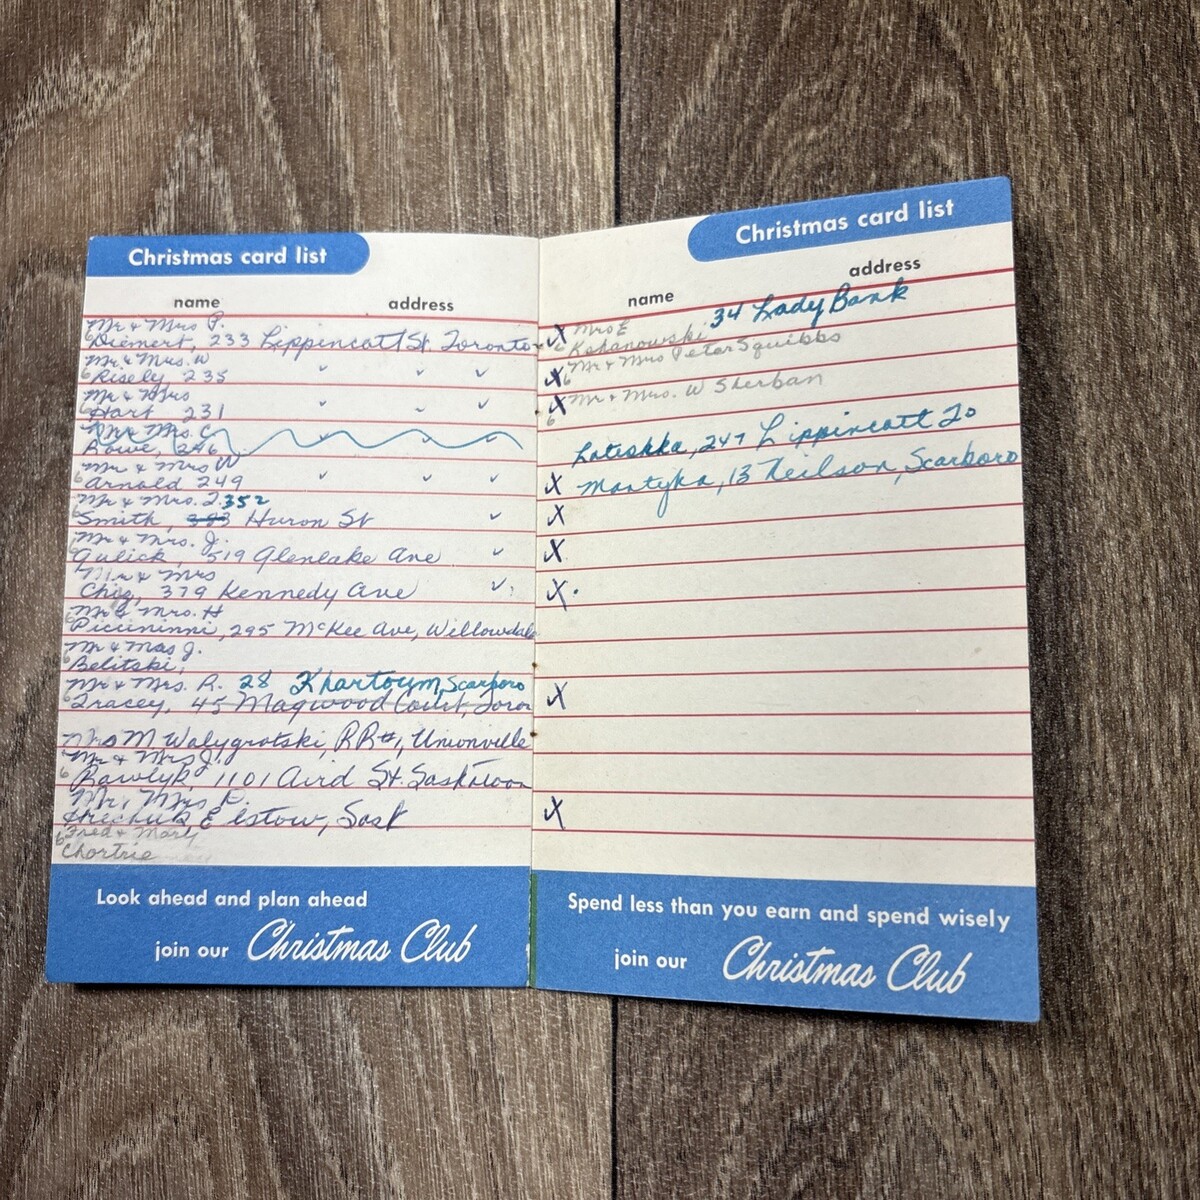 Christmas card list
name address
Mr & Mrs P.
Diemert, 233 Lippincott St Toronto
Mr & Mrs. W
6 Risely 235
Mr & Mrs
6 Hart 231
Mr & Mrs. C
Rowe, 246
Mr & Mrs W
6 Arnold 249
Mr & Mrs. J. 352
Smith, Huron St
Mr & Mrs. J.
Gulick, 519 Glenlake Ave
Mr & Mrs
379 Kennedy Ave
Mr & Mrs. H
Piccininni, 295 McKee Ave, Willowdale
Mr & Mrs J.
Belitski,
Mr & Mrs. R. 28 Khartoum, Scarboro
Tracey, 45 Magwood Court, Toron
Mrs M Walygrotski, RR#1, Unionville
Mr & Mrs J.
6 Rawlyk, 1101 Aird St. Saskatoon
Mr, Mrs
Elstow, Sask
6 Fred & Mary
Chortrie
Look ahead and plan ahead
join our Christmas Club
Christmas card list
name address
X Mrs E 34 Lady Bank
6 Kohanowski
X 6 Mr & Mrs Peter Squibbs
X 6 Mr & Mrs. W Sherban
Lateshka, 247 Lippincott To
X Martyka, 13 Neilson, Scarboro
X
X
X
X
X
Spend less than you earn and spend wisely
join our Christmas Club